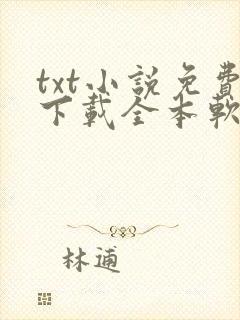 txt小說免費
下載全本軟
林逋